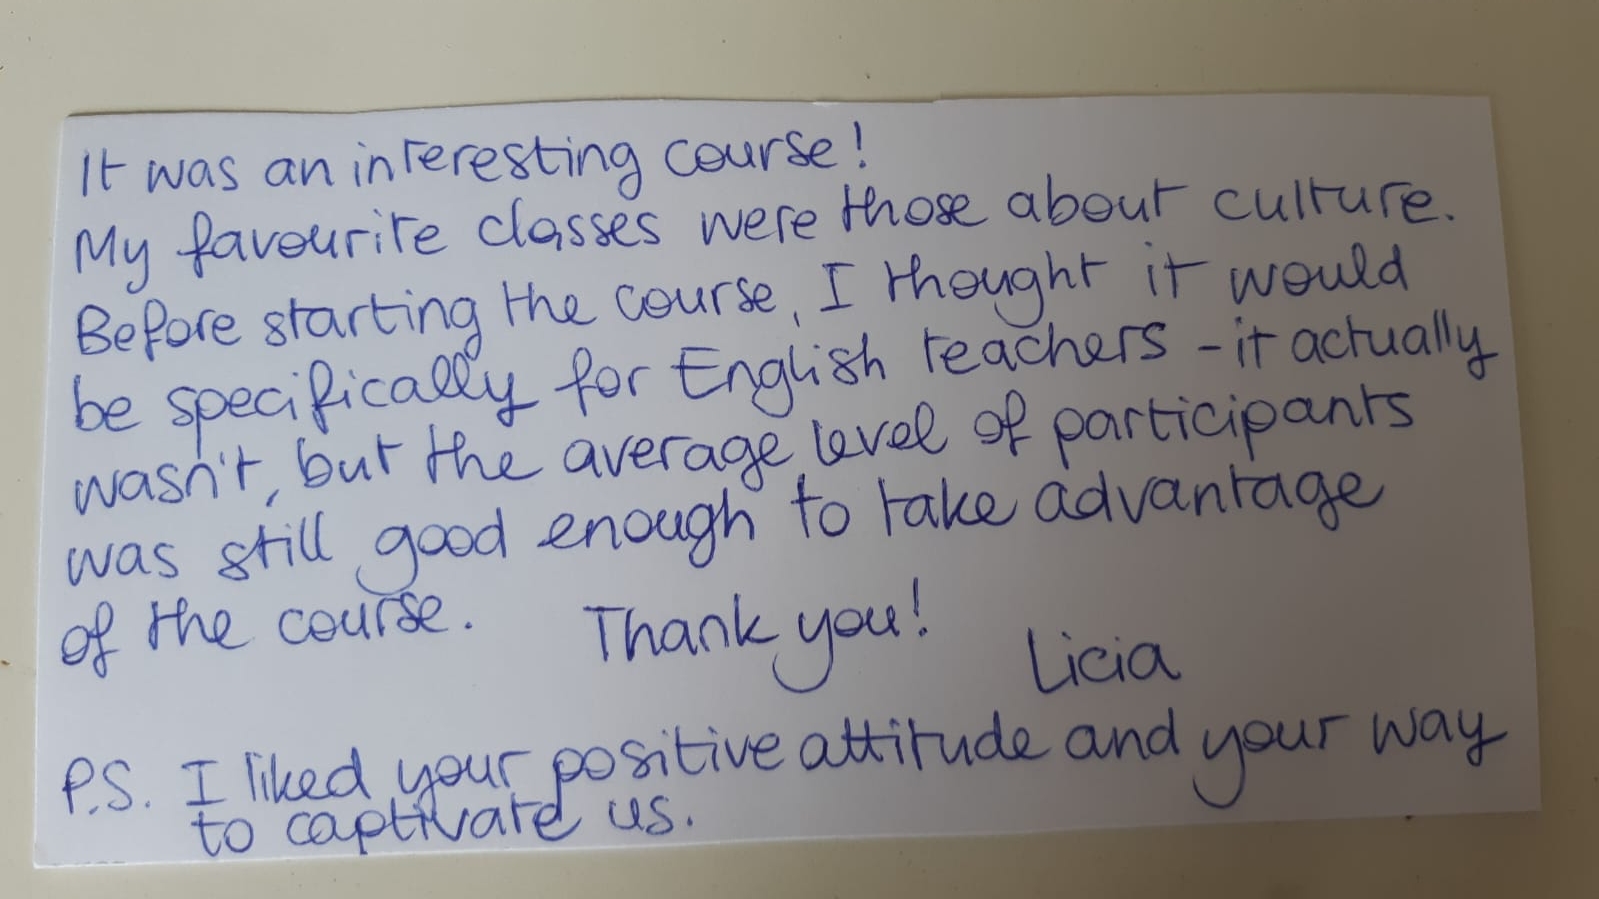 It was an interesting course!
My favourite classes were those about culture.
Before starting the course, I thought it would
be specifically for English teachers - it actually
wasn't, but the average level of participants
was still good enough to take advantage
of the course. Thank you!
Licia
P.S. I liked your positive attitude and your way
to captivate us.